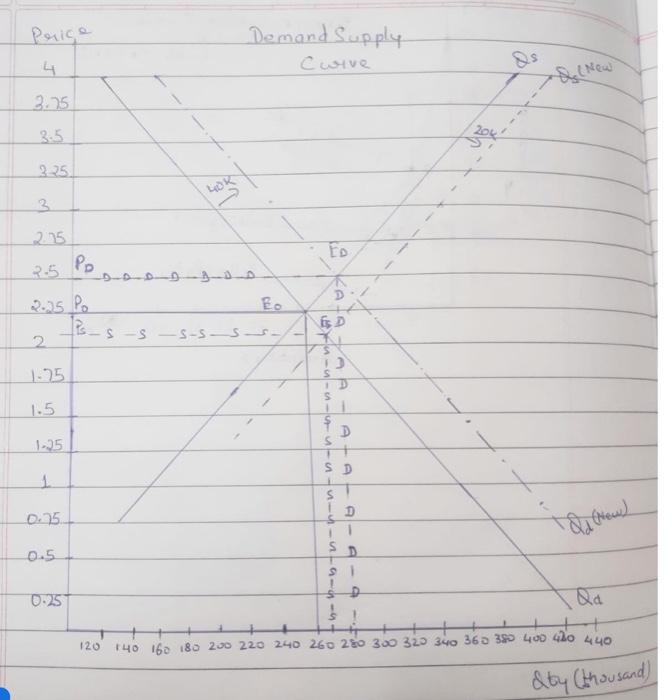 Price
Demand Supply
Curve
4
3.75
3.5
3.25
3
2.75
2.5
2.25
2
1.75
1.5
1.25
1
0.75
0.5
0.25
Qs
Qs (New)
20k
40K
ED
PD
D D D D D D D
P0
E0
D
Ps
S S S S S S
Es D
S D
S D
S
S D
S D
S
S D
S D
S
S D
S
Qd (New)
Qd
120 140 160 180 200 220 240 260 280 300 320 340 360 380 400 420 440
Qty (thousand)